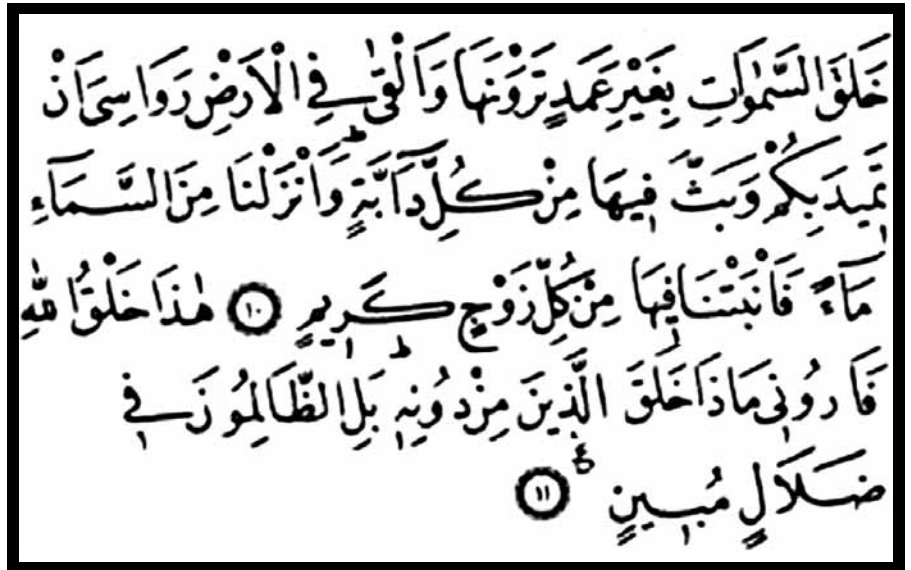 خَلَقَ السَّمٰوَاتِ بِغَيْرِ عَمَدٍ تَرَوْنَهَا وَاَلْقٰى فِي الْاَرْضِ رَوَاسِيَ اَنْ
تَمِيدَ بِكُمْ وَبَثَّ فِيهَا مِنْ كُلِّ دَٓابَّةٍۜ وَاَنْزَلْنَا مِنَ السَّمَٓاءِ
مَٓاءً فَاَنْبَتْنَا فِيهَا مِنْ كُلِّ زَوْجٍ كَرِيمٍ ﴿١٠﴾ هٰذَا خَلْقُ اللّٰهِ
فَاَرُونِي مَاذَا خَلَقَ الَّذِينَ مِنْ دُونِهِۜ بَلِ الظَّالِمُونَ فِي
ضَلَالٍ مُبِينٍ ع ﴿١١﴾